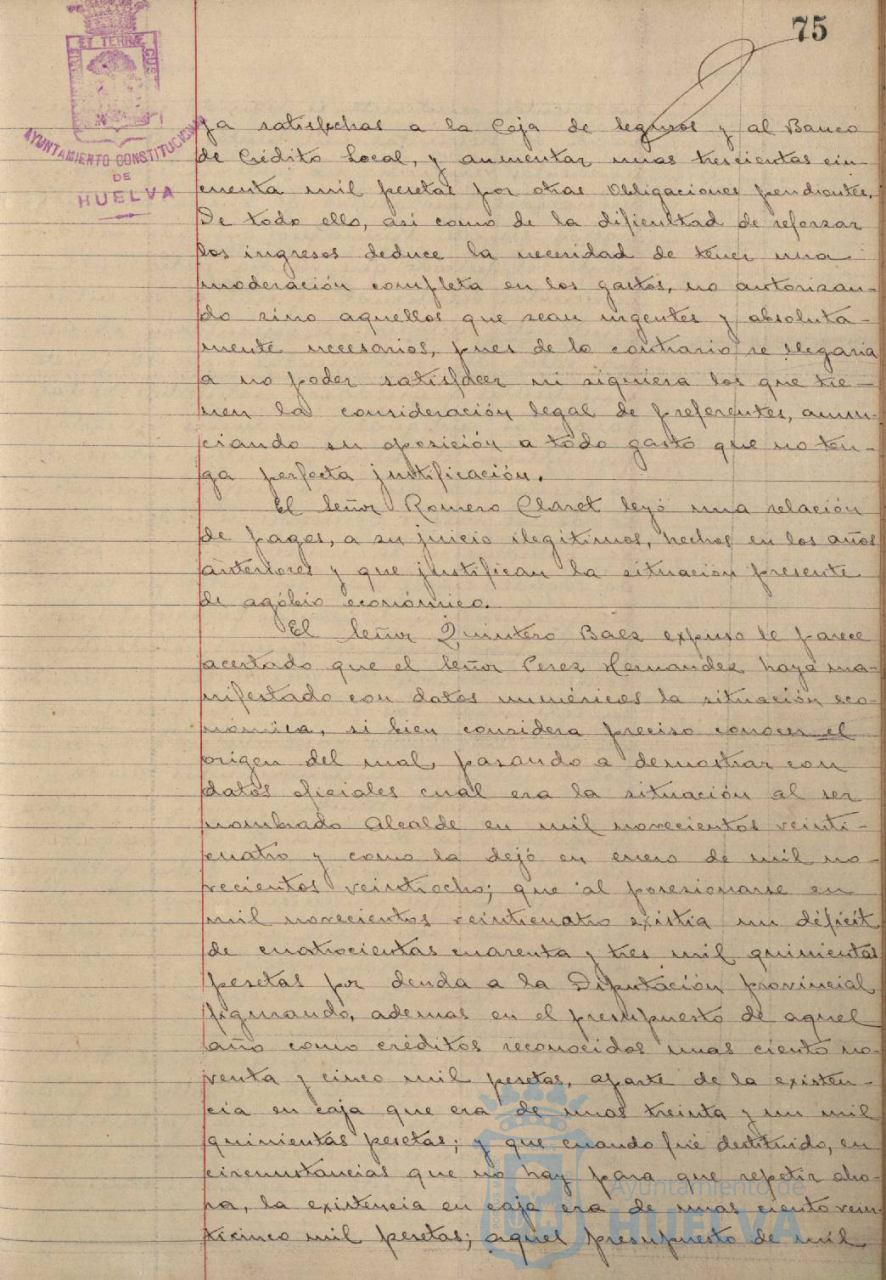 75
ET TERRÆ
AYUNTAMIENTO CONSTITUCIONAL
DE
HUELVA
ya satisfechas a la Caja de Seguros y al Banco
de Crédito Local, y aumentar unas trescientas cin-
cuenta mil pesetas por otras obligaciones pendientes.
De todo ello, así como de la dificultad de reforzar
los ingresos deduce la necesidad de tener una
moderación completa en los gastos, no autorizan-
do sino aquellos que sean urgentes y absoluta-
mente necesarios, pues de lo contrario se llegaria
a no poder satisfacer ni siquiera los que tie-
nen la consideración legal de preferentes, anun-
ciando su oposición a todo gasto que no ten-
ga perfecta justificación.
El Señor Romero Claret leyó una relación
de pagos, a su juicio ilegítimos, hechos en los años
anteriores y que justifican la situación presente
de agóbio económico.
El Señor Quintero Baez expuso le parece
acertado que el Señor Perez Hernandez haya ma-
nifestado con datos numéricos la situación eco-
nómica, si bien considera preciso conocer el
origen del mal, pasando a demostrar con
datos oficiales cual era la situación al ser
nombrado Alcalde en mil novecientos veinti-
cuatro y como la dejó en enero de mil no-
vecientos veintiocho; que al posesionarse en
mil novecientos veinticuatro existia un déficit
de cuatrocientas cuarenta y tres mil quinientas
pesetas por deuda a la Diputación provincial
figurando, ademas en el presupuesto de aquel
año como créditos reconocidos unas ciento no-
venta y cinco mil pesetas, aparte de la existen-
cia en caja que era de unas treinta y un mil
quinientas pesetas; y que cuando fué destituido, en
circunstancias que no hay para que repetir aho-
ra, la existencia en caja era de unas ciento vein-
ticinco mil pesetas; aquel presupuesto de mil
Ayuntamiento de
HUELVA